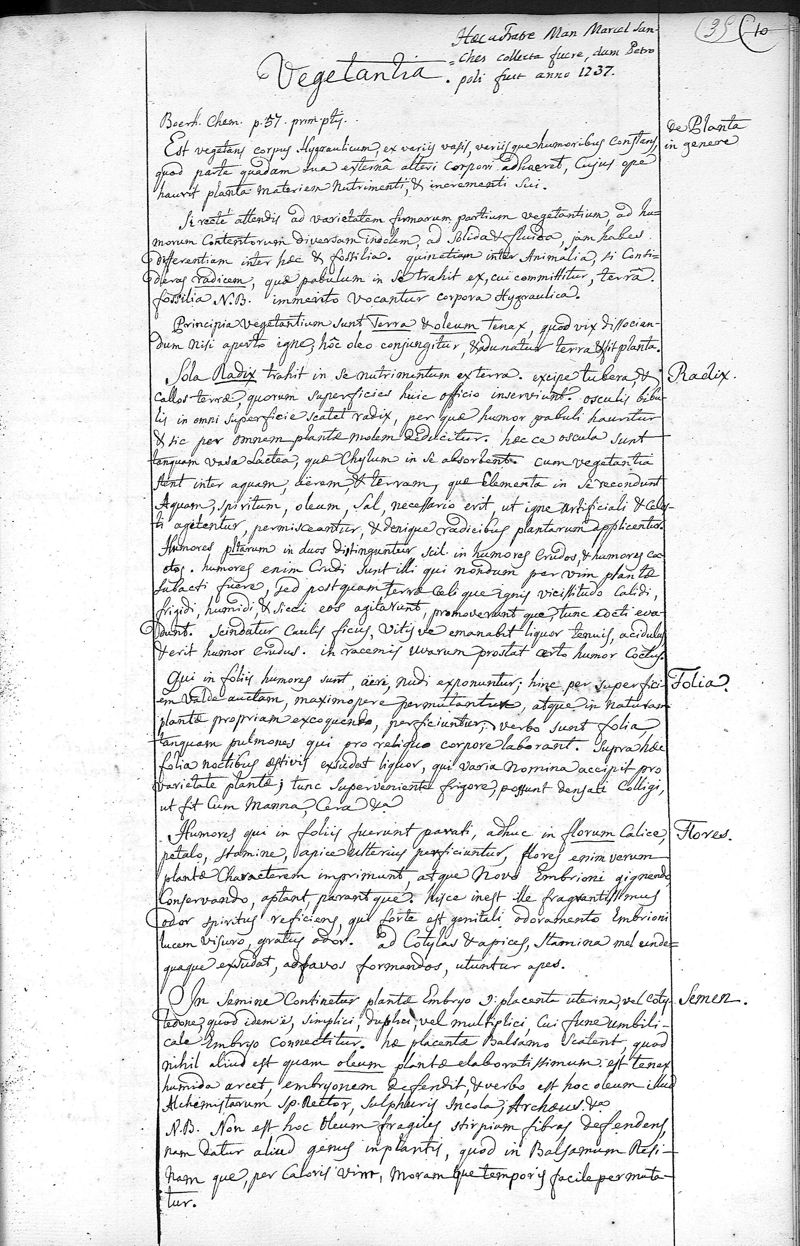 35 10
Hæc a Fratre Man Marcel San=
ches collecta fuere, dum Petro
poli fuit anno 1737.
Vegetantia.
Boerh. Chem. p. 57. prim ptis.
de Planta
in genere
Est vegetans corpus Hygraulicum, ex variis vasis, veriisque humoribus Constans,
quod parte quadam sua externâ alteri corpori adhaeret, Cujus ope
haurit planta materiem Nutrimenti, & incrementi sui.
Si rectè attendis ad varietatem firmarum partium vegetantium, ad hu=
morum Contentorum diversam indolem, ad Solida & fluida, jam habes
differentiam inter hæc & fossilia. quinetiam inter Animalia, si Consi=
deras radicem, quæ pabulum in se trahit ex, cui committitur, terrâ.
fossilia N.B. immerito vocantur corpora Hygraulica.
Principia vegetantium sunt Terra & oleum tenax, quod vix dissocian=
dum nisi aperto igne; hôc oleo conjungitur, & adunatur terra & fit planta.
Radix.
Sola Radix trahit in se nutrimentum ex terra. excipe tubera, &
Callos terræ, quorum superficies huic officio inserviunt. osculis bibu=
lis in omni superficie scatet radix, per quæ humor pabuli hauritur
& sic per omnem plantæ molem deducitur. hæcce oscula sunt
tanquam vasa Lactea, quæ Chylum in se absorbent. cum vegetantia
stent inter aquam, aerem, & terram, quæ Elementa in se recondunt
Aquam, spiritum, oleum, Sal, necessario erit, ut igne artificiali & Celes=
ti agitentur, permisceantur, & denique radicibus plantarum applicentur.
Humores pltarum in duos distinguntur scil. in humores Crudos, & humores co=
ctos. humores enim Crudi sunt illi qui nondum per vim plantæ
subacti fuere, sed postquam terræ Cælique ignis vicissitudo Calidi,
frigidi, humidi, & sicci eos agitarunt, promoverunt que, tunc cocti eva=
dunt. Scindatur Caulis ficus, Vitisve emanabit liquor tenuis, acidulus
& erit humor Crudus. in racemis uvarum prostat certo humor Coctus.
Folia.
Qui in foliis humores sunt, aëri, nudi exponuntur; hinc per superfici=
em valde auctam, maximopere permutantur, atque in naturam
plantæ propriam excoquendo, perficiuntur, verbo sunt folia
tanquam pulmones qui pro reliquo corpore laborant. Supra hæc
folia noctibus æstivis exsudat liquor, qui varia Nomina accipit pro
varietate plantæ; tunc superveniente frigore, possunt densati Colligi,
ut fit Cum Manna, Cera &a
Flores.
Humores qui in foliis fuerunt parati, adhuc in florum Calice,
petalo, stamine, apice ulterius perficiuntur, flores enim verum
plantæ Characterem imprimunt, atque Novo Embrioni gignendo,
Conservando, aptant, parant que. hisce inest ille fragrantissimus
odor spiritus reficiens, qui forte est genitali odoramento Embrioni
lucem visuro, gratus odor. ad Cotylas & apices, stamina mel unde=
quaque exsudat, ad favos formandos, utuntur apes.
Semen.
In Semine Continetur plantæ Embryo &; placenta uterina, vel Coty=
ledone, quod idem ē, simplici, duplici, vel multiplici, Cui fune umbili=
cale Embryo Connectitur. hæ placentæ Balsamo Scatent, quod
nihil aliud est quam oleum plantæ elaboratissimum: est tenax
humida arcet embryonem defendit, & verbo est hoc oleum illud
Alchemistarum Sp. Rector, Sulphuris Incola, Archæus &a
N.B. Non est hoc Oleum fragiles stirpium fibras defendens,
nam datur aliud genus in plantis, quod in Balsamum Resi=
nam que, per Caloris vim, moram que temporis facile permuta=
tur.